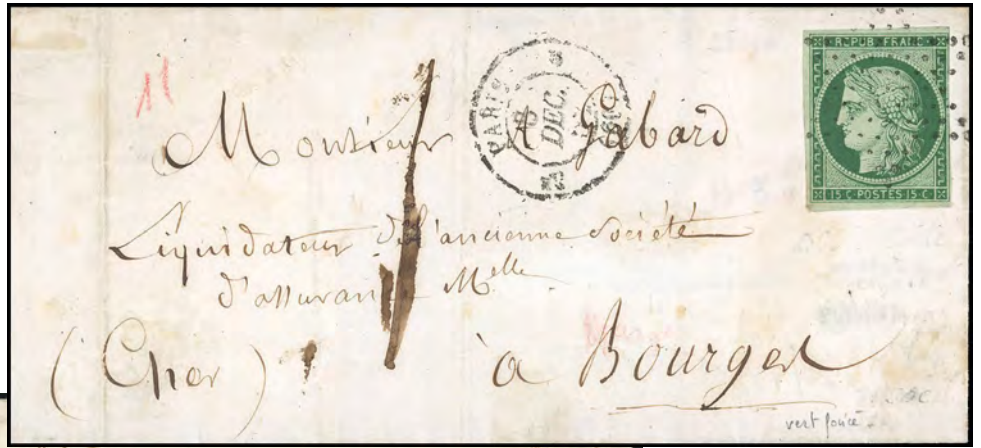 11
REPUB FRANC
PARIS
DEC.
15·C·POSTES·15·C
Monsieur A Gabard
Liquidateur de l'ancienne Société
d'assurance Melle
(Cher) à Bourges
vert foncé